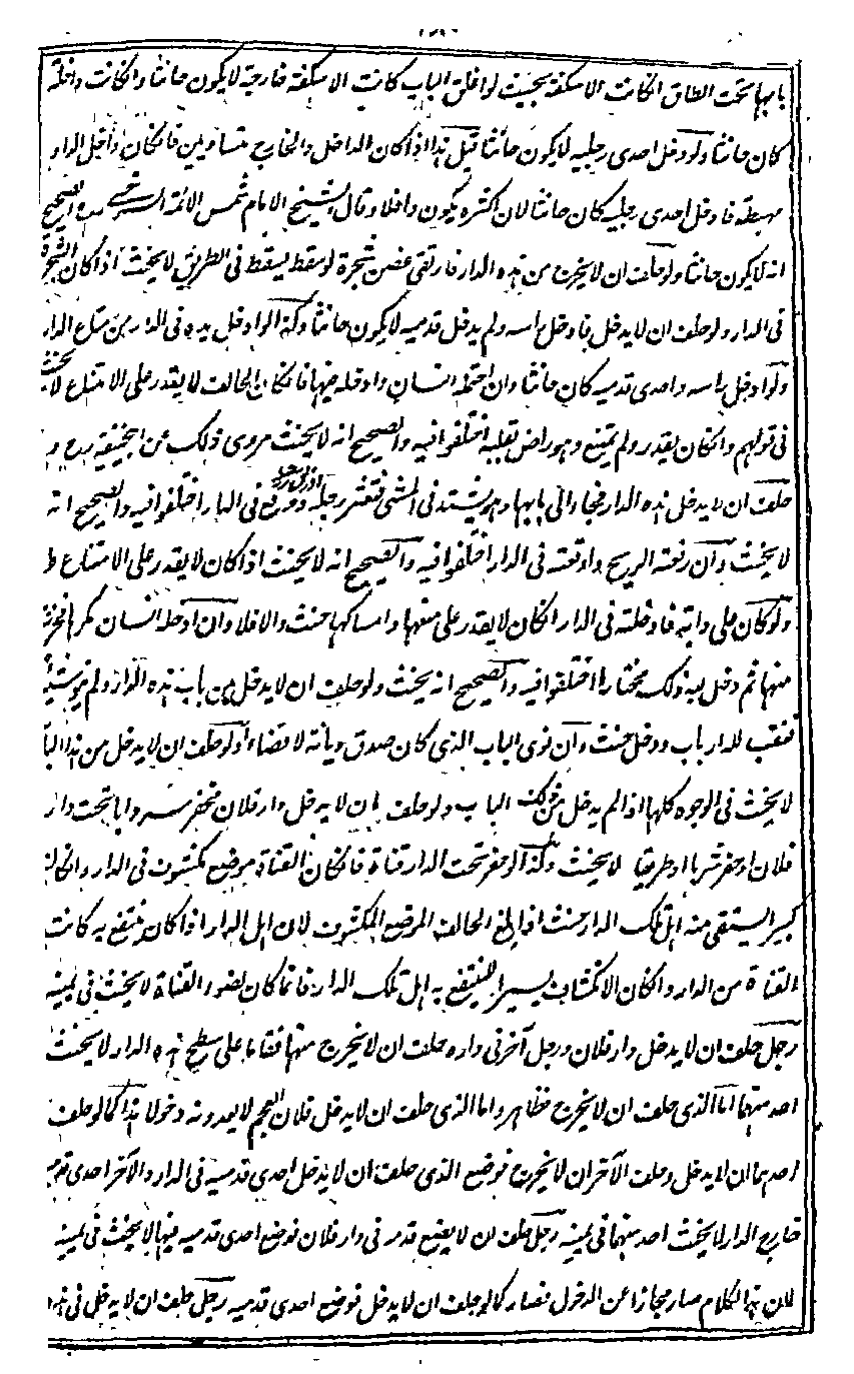 بابها تحت الطاق ان كانت الاسكفة بحيث لو اغلق الباب كانت الاسكفة خارجة لا يكون حانثا وان كانت داخلة
كان حانثا ولو دخل احدى رجليه لا يكون حانثا قيل هذا اذا كان الداخل والخارج متساويين فان كان داخل الدار
مهبطة فادخل احدى رجليه كان حانثا لان اكثره يكون داخلا وقال الشيخ الامام شمس الائمة السرخسي رح الصحيح
انه لا يكون حانثا ولو حلف ان لا يخرج من هذه الدار فارتقى غصن شجرة لو سقط يسقط في الطريق لا يحنث اذا كان الشجرة
في الدار ولو حلف ان لا يدخل فادخل راسه ولم يدخل قدميه لا يكون حانثا وكذا لو ادخل يده في الدار من متاع الدار
ولو ادخل راسه واحدى قدميه كان حانثا وان احتمله انسان وادخله فيها فان كان الحالف لا يقدر على الامتناع لا يحنث
في قولهم وان كان يقدر ولم يمتنع وهو راض بقلبه اختلفوا فيه والصحيح انه لا يحنث مروى ذلك عن ابيحنيفة رح ولو
حلف ان لا يدخل هذه الدار فجاء الى بابها وهو يشتد في المشي فتعثر رجله ووقع في الدار اختلفوا فيه والصحيح انه
لا يحنث وان رفعته الريح واوقعته في الدار اختلفوا فيه والصحيح انه لا يحنث اذا كان لا يقدر على الامتناع ط
ولو كان على دابة فادخلته في الدار ان كان لا يقدر على منعها وامساكها حنث والا فلا وان ادخله انسان مكرها فخرج
منها ثم دخل بعد ذلك مختارا اختلفوا فيه والصحيح انه يحنث ولو حلف ان لا يدخل من باب هذه الدار ولم ينو شيئا
فنقب للدار باب ودخل حنث وان نوى الباب الذي كان صدق ديانة لا قضاء ولو حلف ان لا يدخل من هذا الباب
لا يحنث في الوجوه كلها اذا لم يدخل من ذلك الباب ولو حلف ان لا يدخل دار فلان فحفر سردابا تحت دار
فلان او حفر سربا او طريقا لا يحنث وكذا لو حفر تحت الدار قناة فان كان القناة موضع مكشوف في الدار وان كان
كبير ايستقي منه اهل تلك الدار حنث اذا بلغ الحالف الموضع المكشوف لان اهل الدار اذا كان ينتفع به كانت
القناة من الدار وان كان الانكشاف يسير الا ينتفع به اهل تلك الدار فانما كان لضوء القناة لا يحنث في يمينه
رجل حلف ان لا يدخل دار فلان ورجل آخر في داره حلف ان لا يخرج منها فقاما على سطح هذه الدار لا يحنث
احد منهما اما الذي حلف ان لا يخرج فظاهر واما الذي حلف ان لا يدخل فلان العجم لا يعدونه دخولا هذا كما لو حلف
احدهما ان لا يدخل وحلف الآخر ان لا يخرج فوضع الذي حلف ان لا يدخل احدى قدميه في الدار والآخر احدى قدميه
خارج الدار لا يحنث احد منهما في يمينه رجل حلف ان لا يضع قدمه في دار فلان فوضع احدى قدميه فيها لا يحنث في يمينه
لان هذا الكلام صار مجازا عن الدخول فصار كما لو حلف ان لا يدخل فوضع احدى قدميه رجل حلف ان لا يدخل في هذه